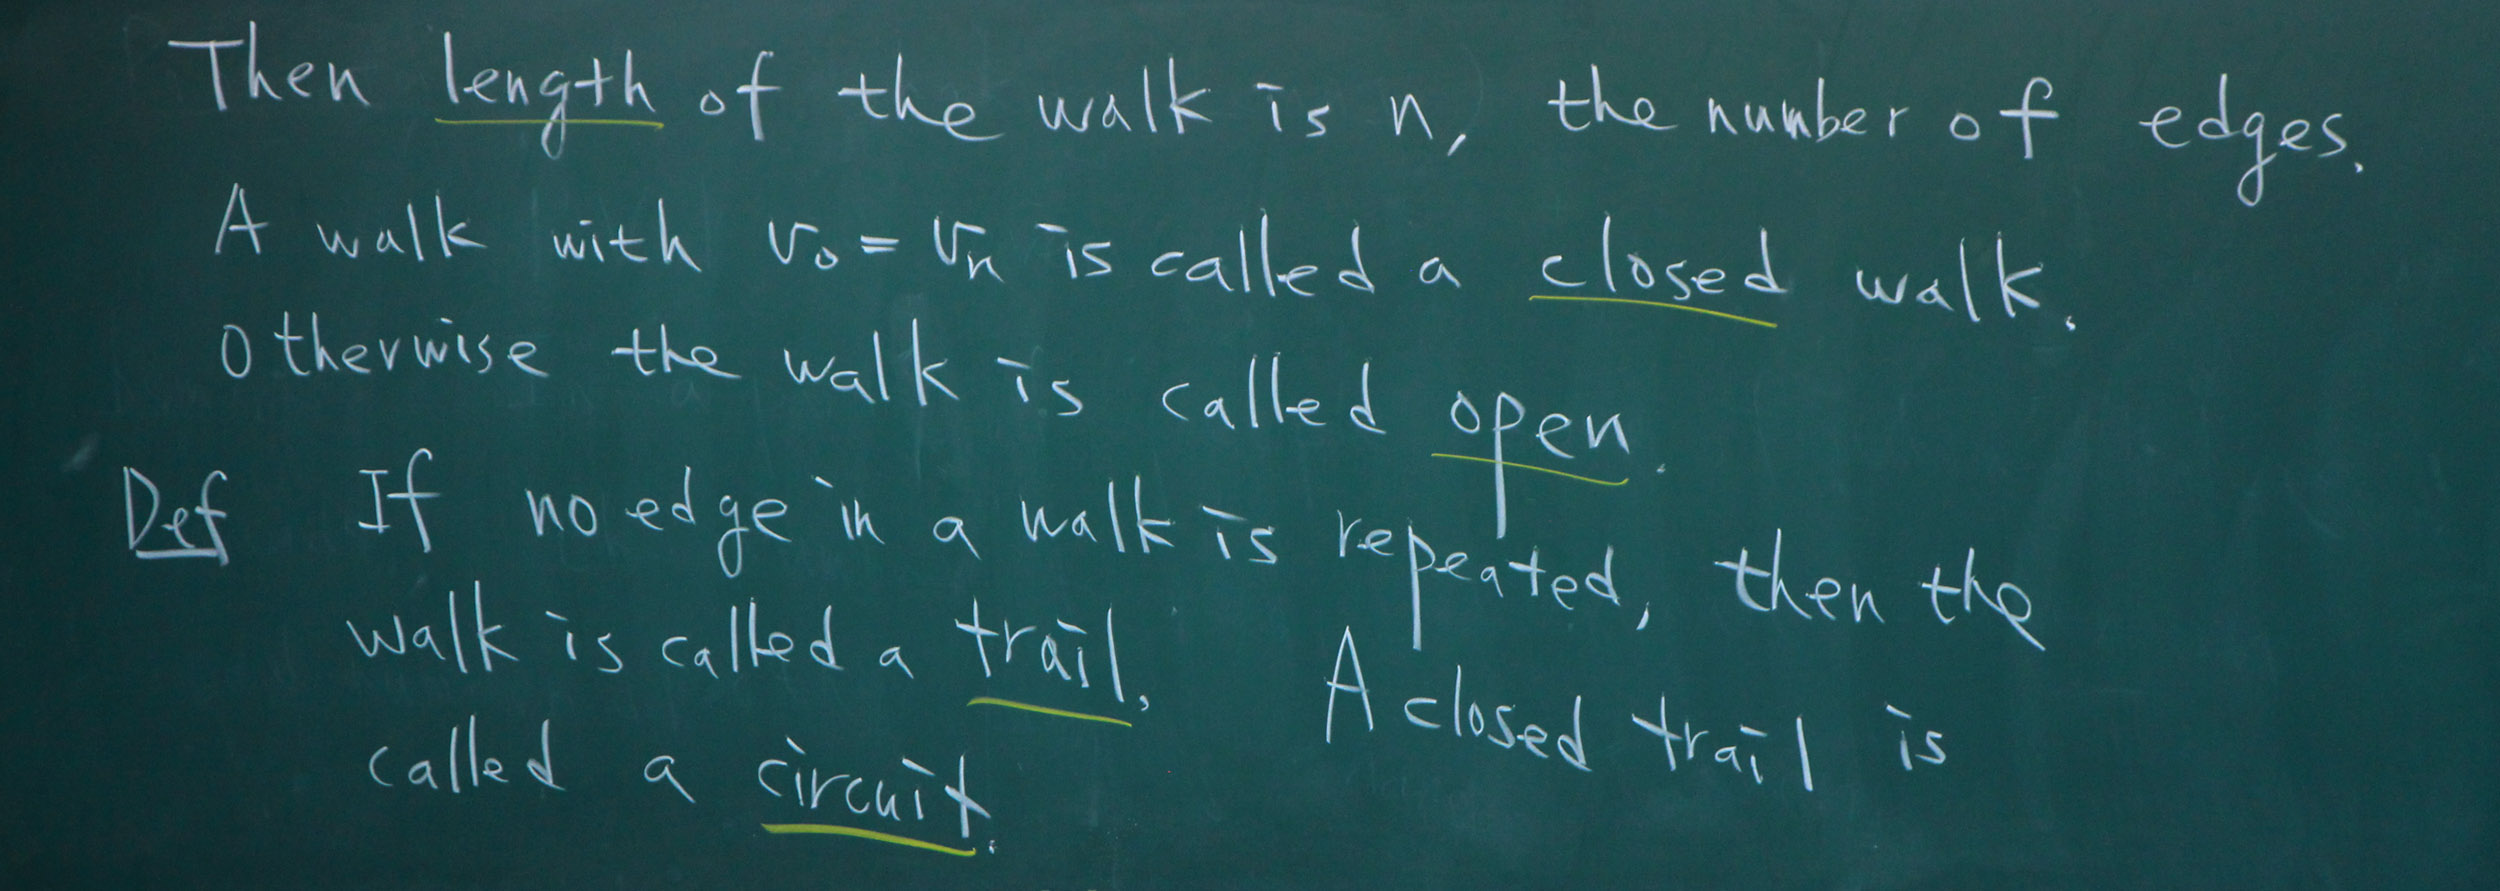 Then length of the walk is n, the number of edges.
A walk with v₀ = vₙ is called a closed walk.
Otherwise the walk is called open.
Def If no edge in a walk is repeated, then the
walk is called a trail. A closed trail is
called a circuit.